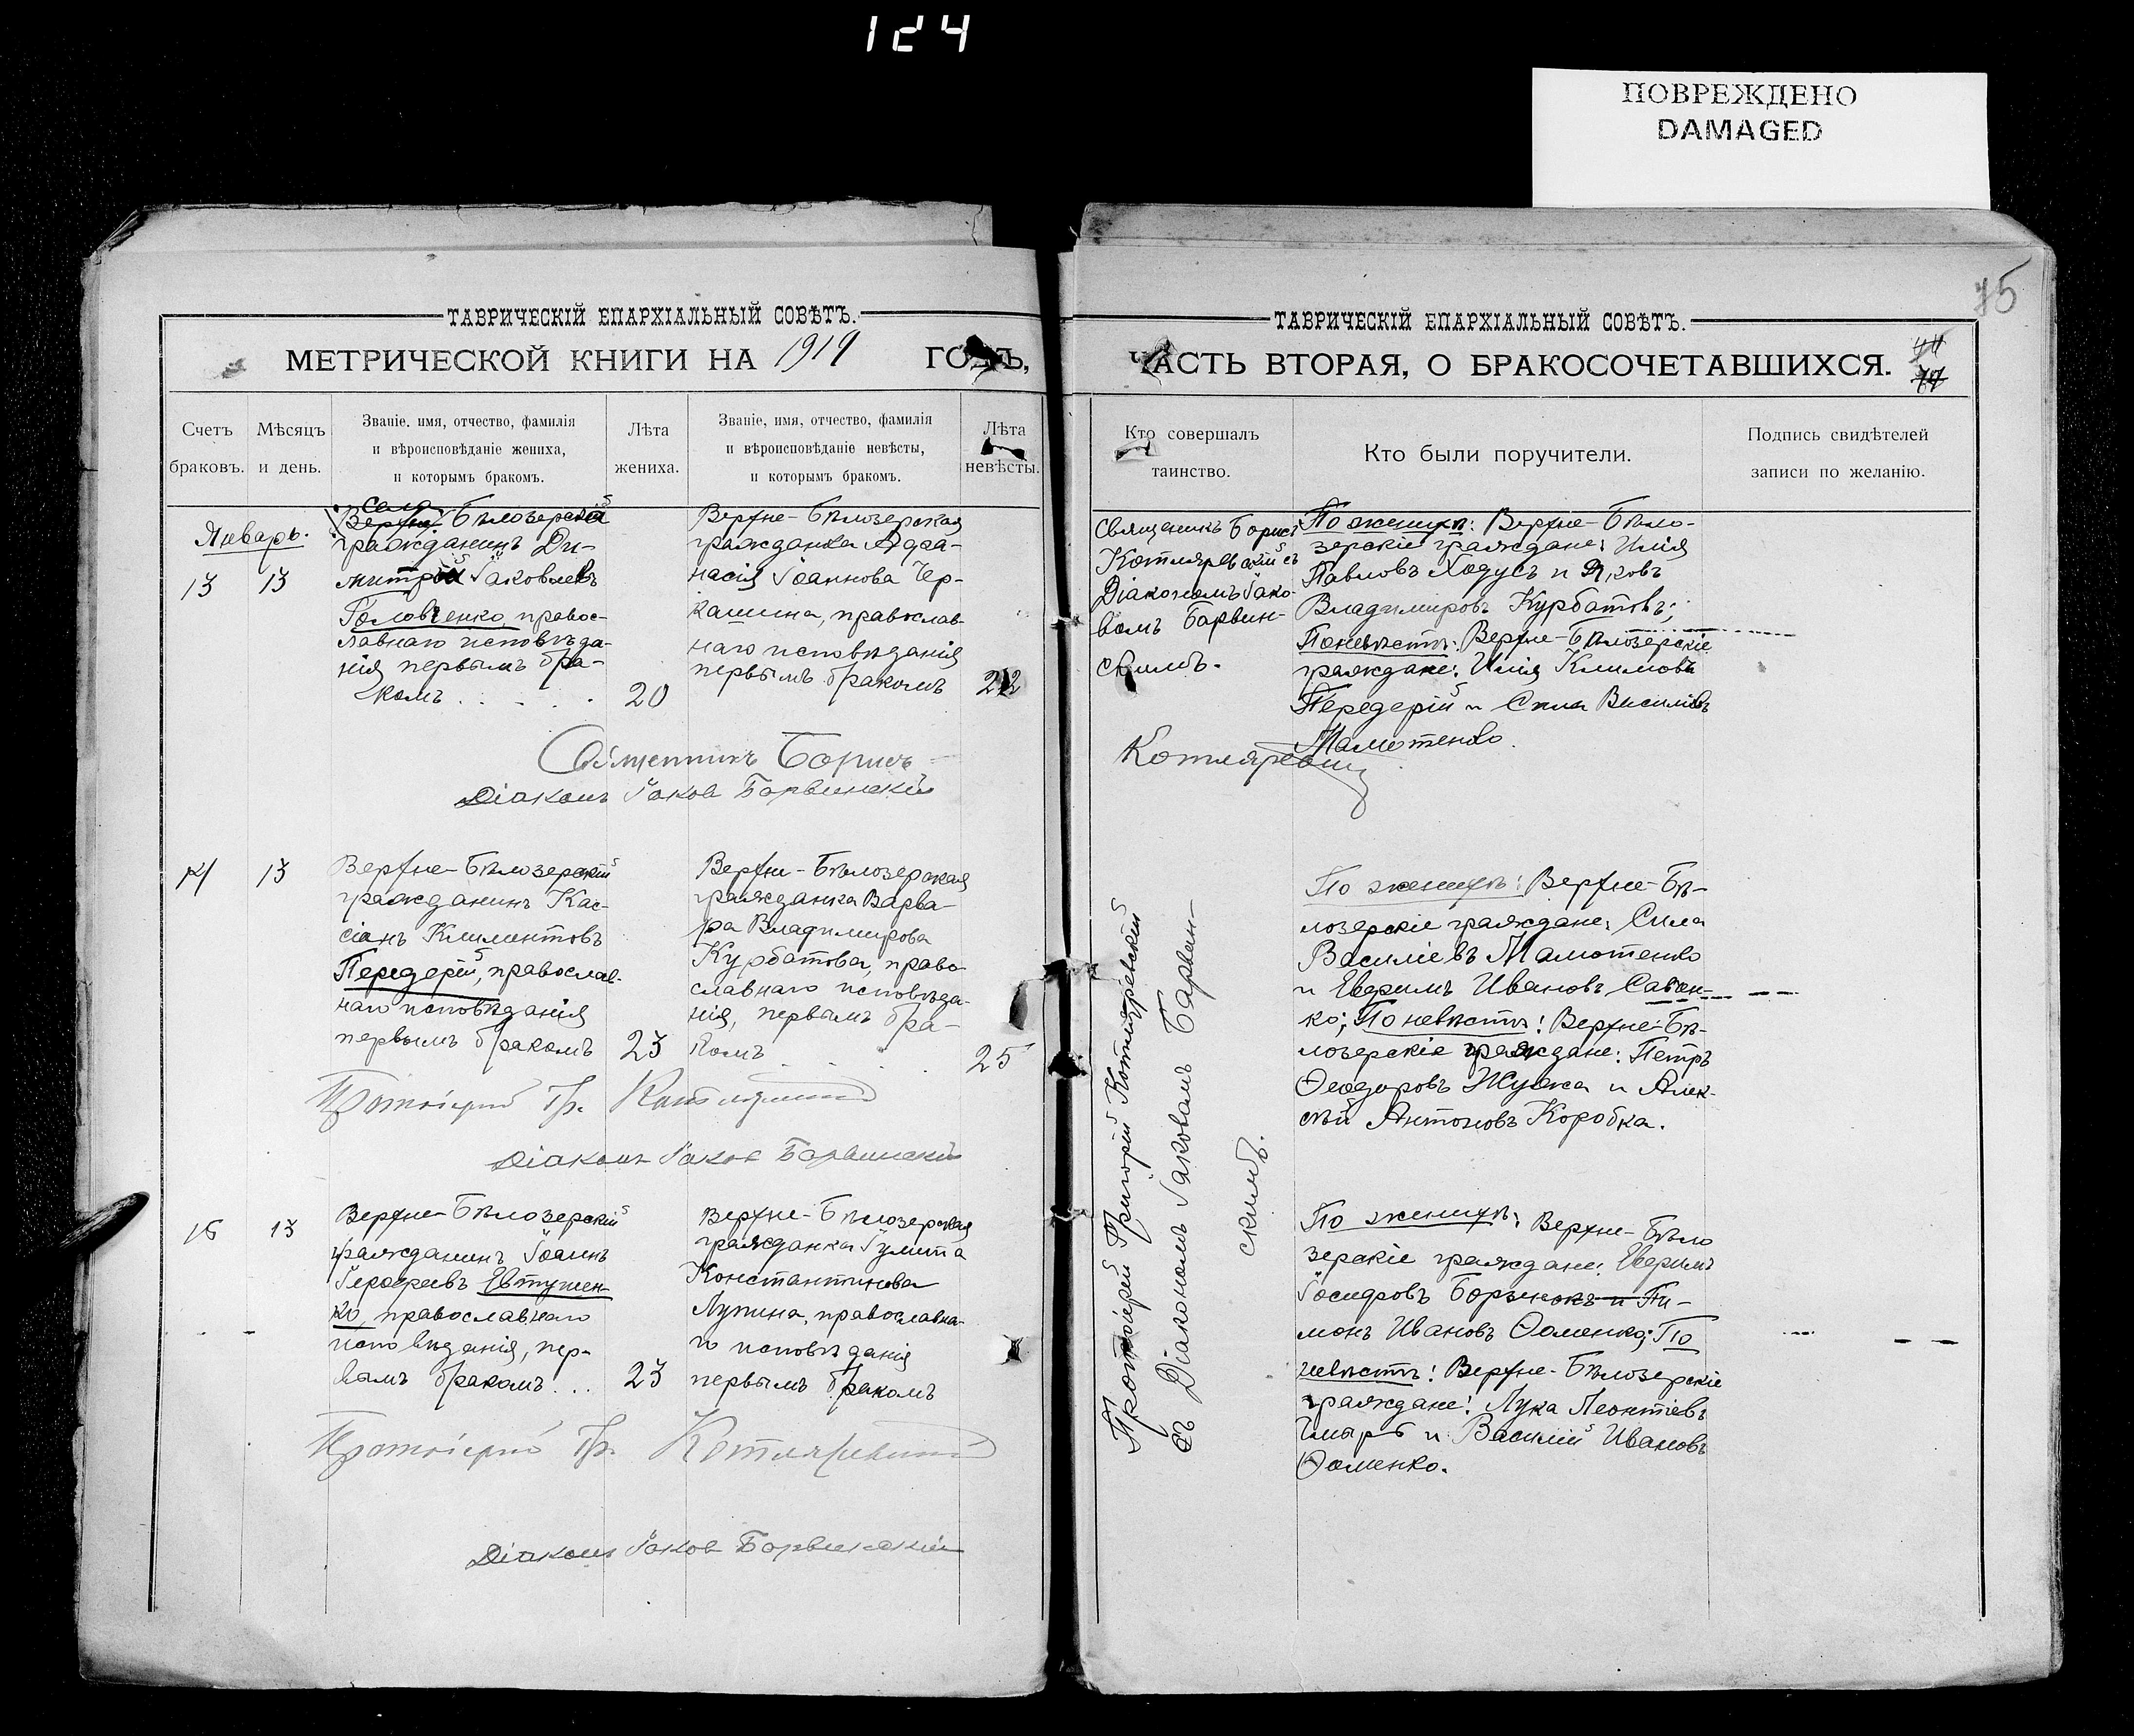 124
ПОВРЕЖДЕНО
DAMAGED
75
ТАВРИЧЕСКІЙ ЕПАРХІАЛЬНЫЙ СОВѢТЪ.
МЕТРИЧЕСКОЙ КНИГИ НА 1919 ГОДЪ,
Счетъ браковъ.
Мѣсяцъ и день.
Званіе, имя, отчество, фамилія
и вѣроисповѣданіе жениха,
и которымъ бракомъ.
Лѣта жениха.
Званіе, имя, отчество, фамилія
и вѣроисповѣданіе невѣсты,
и которымъ бракомъ.
Лѣта невѣсты.
Январь.
13
13
села
Верхне-Бѣлозерскій
гражданинъ Ди-
митрій Іаковлевъ
Головченко, правос-
лавнаго исповѣда-
нія первымъ бра-
комъ
20
Верхне-Бѣлозерская
гражданка Афа-
насія Іоаннова Чер-
кашина, православ-
наго исповѣданія
первымъ бракомъ
22
Священникъ Борисъ
Діаконъ Іаковъ Барвинскій
14
13
Верхне-Бѣлозерскій
гражданинъ Кас-
сіанъ Климентовъ
Передерій, православ-
наго исповѣданія
первымъ бракомъ
23
Верхне-Бѣлозерская
гражданка Варва-
ра Владимирова
Курбатова, право-
славнаго исповѣда-
нія, первымъ бра-
комъ
25
Протоіерей Гр. Котляревскій
Діаконъ Іаковъ Барвинскій
15
13
Верхне-Бѣлозерскій
гражданинъ Іоаннъ
Іерофеевъ Евтушен-
ко, православнаго
исповѣданія, пер-
вымъ бракомъ
23
Верхне-Бѣлозерская
гражданка Іулита
Константинова
Лупина, православна-
го исповѣданія
первымъ бракомъ
Протоіерей Гр. Котляревскій
Діаконъ Іаковъ Барвинскій
ТАВРИЧЕСКІЙ ЕПАРХІАЛЬНЫЙ СОВѢТЪ.
ЧАСТЬ ВТОРАЯ, О БРАКОСОЧЕТАВШИХСЯ.
Кто совершалъ таинство.
Кто были поручители.
Подпись свидѣтелей
записи по желанію.
Священникъ Борисъ
Котляревскій съ
Діакономъ Іако-
вомъ Барвин-
скимъ.
По женихѣ: Верхне-Бѣло-
зерскіе граждане: Илія
Павловъ Ходусъ и Яковъ
Владимировъ Курбатовъ;
По невѣстѣ: Верхне-Бѣлозерскіе
граждане: Илія Климовъ
Передерій и Сила Василіевъ
Мамотенко.
Котляревскій
Протоіерей Григорій Котляревскій
съ Діакономъ Іаковомъ Барвин-
скимъ.
По женихѣ: Верхне-Бѣ-
лозерскіе граждане: Сила
Василіевъ Мамотенко
и Ефримъ Ивановъ Савен-
ко; По невѣстѣ: Верхне-Бѣ-
лозерскіе граждане: Петръ
Ѳеодоровъ и Алек-
сѣй Антоновъ Коробка.
По женихѣ: Верхне-Бѣло
зерскіе граждане: Ефримъ
Іосифовъ и Ти-
монъ Ивановъ Ѳоменко; По
невѣстѣ: Верхне-Бѣлозерскіе
граждане: Лука Леонтіевъ
и Василій Ивановъ
Ѳоменко.